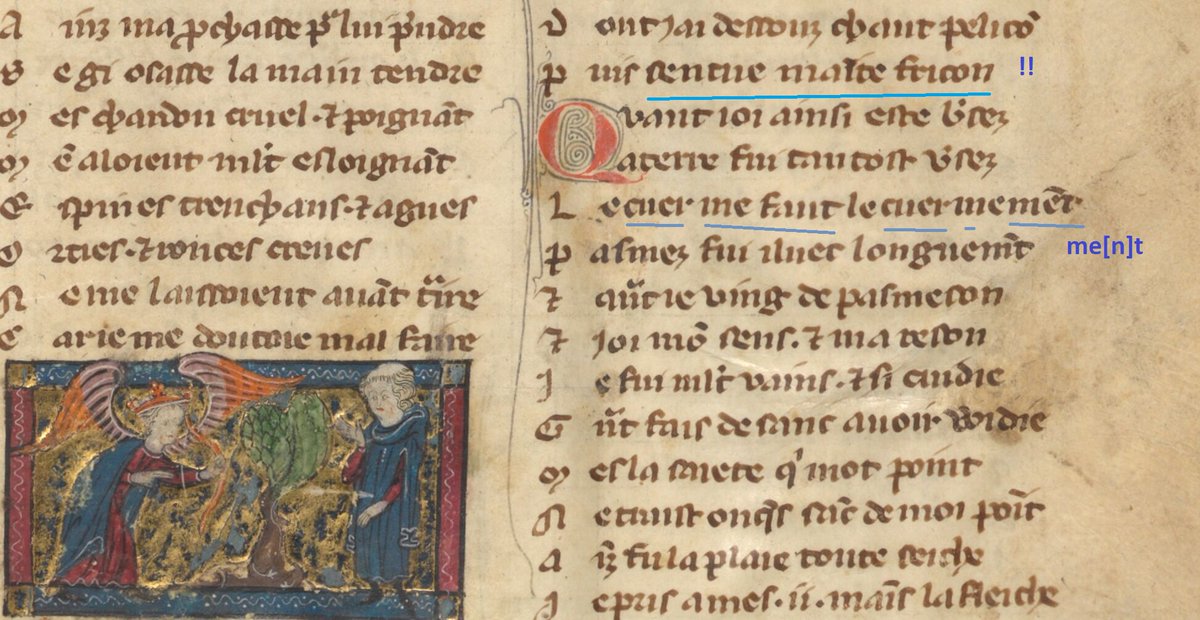 A inz ma p̱chasse pͬ lui p̃ndre
S e gi osasse la main tendre
M es chardon cruel ⁊ poignãt
M ẽ aloient ml't esloignãt
E spines trenchans ⁊ agues
O rties ⁊ ronces creues
N e me laissoient auãt t̃ire
C ar ie me doutoie mal faire
D ont iai dessouz chaut pelicõ
P uis sentue maĩte fricon !!
Quant ioi ainsi este b̾sez
A terre fui tantost v̾sez
L e cuer me faut le cuer me mẽt
me[n]t
P asmez fui iluec longuem̃t
⁊ qũt ie ving de pasmeson
⁊ ioi mõ sens ⁊ ma reson
J e fui ml't vains ⁊ si cuidie
G ñt fais de sanc auoir widie
M es la saiete q' mot point
N e traist onq̃s sãc de moi poĩt
A īz fu la plaie toute seiche
J e pris a mes .ii. maĩs la fleiche